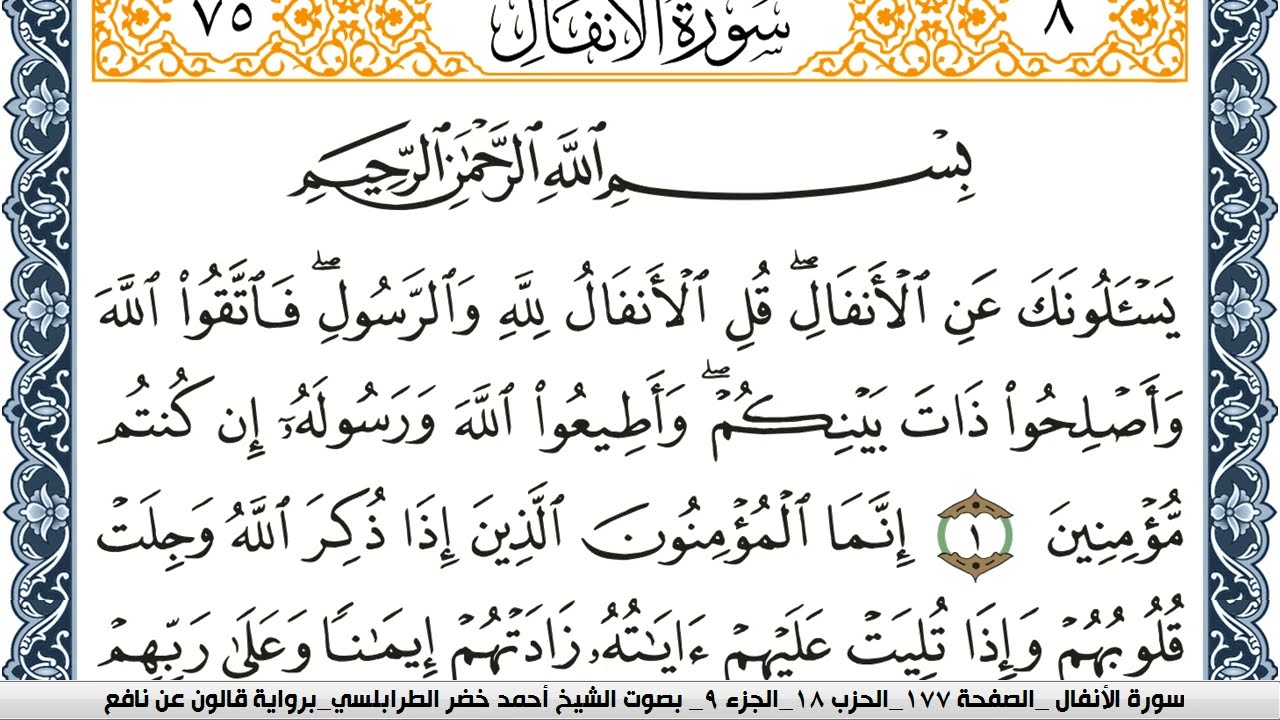 ٨ سورة الأنفال ٧٥
بِسْمِ ٱللَّهِ ٱلرَّحْمَٰنِ ٱلرَّحِيمِ
يَسْـَٔلُونَكَ عَنِ ٱلْأَنفَالِۖ قُلِ ٱلْأَنفَالُ لِلَّهِ وَٱلرَّسُولِۖ فَٱتَّقُوا۟ ٱللَّهَ
وَأَصْلِحُوا۟ ذَاتَ بَيْنِكُمْۖ وَأَطِيعُوا۟ ٱللَّهَ وَرَسُولَهُۥٓ إِن كُنتُم
مُّؤْمِنِينَ ١ إِنَّمَا ٱلْمُؤْمِنُونَ ٱلَّذِينَ إِذَا ذُكِرَ ٱللَّهُ وَجِلَتْ
قُلُوبُهُمْ وَإِذَا تُلِيَتْ عَلَيْهِمْ ءَايَٰتُهُۥ زَادَتْهُمْ إِيمَٰنًا وَعَلَىٰ رَبِّهِمْ
سورة الأنفال _الصفحة ١٧٧_الحزب ١٨_الجزء ٩_ بصوت الشيخ أحمد خضر الطرابلسي_برواية قالون عن نافع